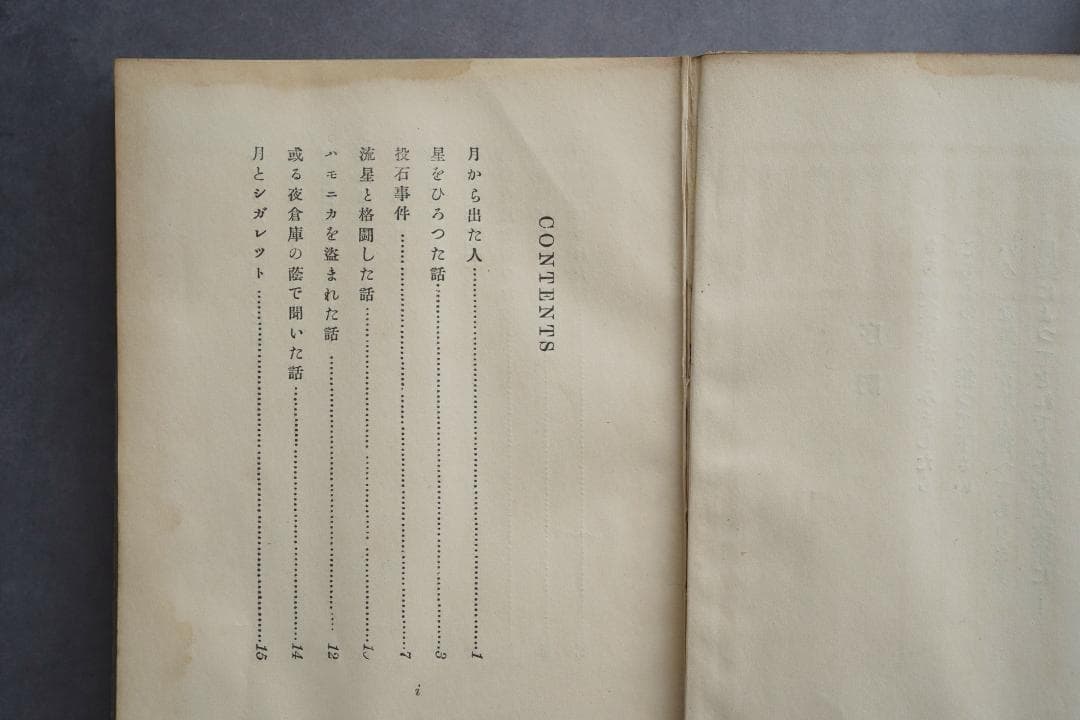 CONTENTS
月から出た人……………………1
星をひろつた話……………………3
投石事件……………………7
流星と格闘した話……………………10
ハモニカを盗まれた話……………………12
或る夜倉庫の蔭で聞いた話……………………14
月とシガレツト……………………15
i